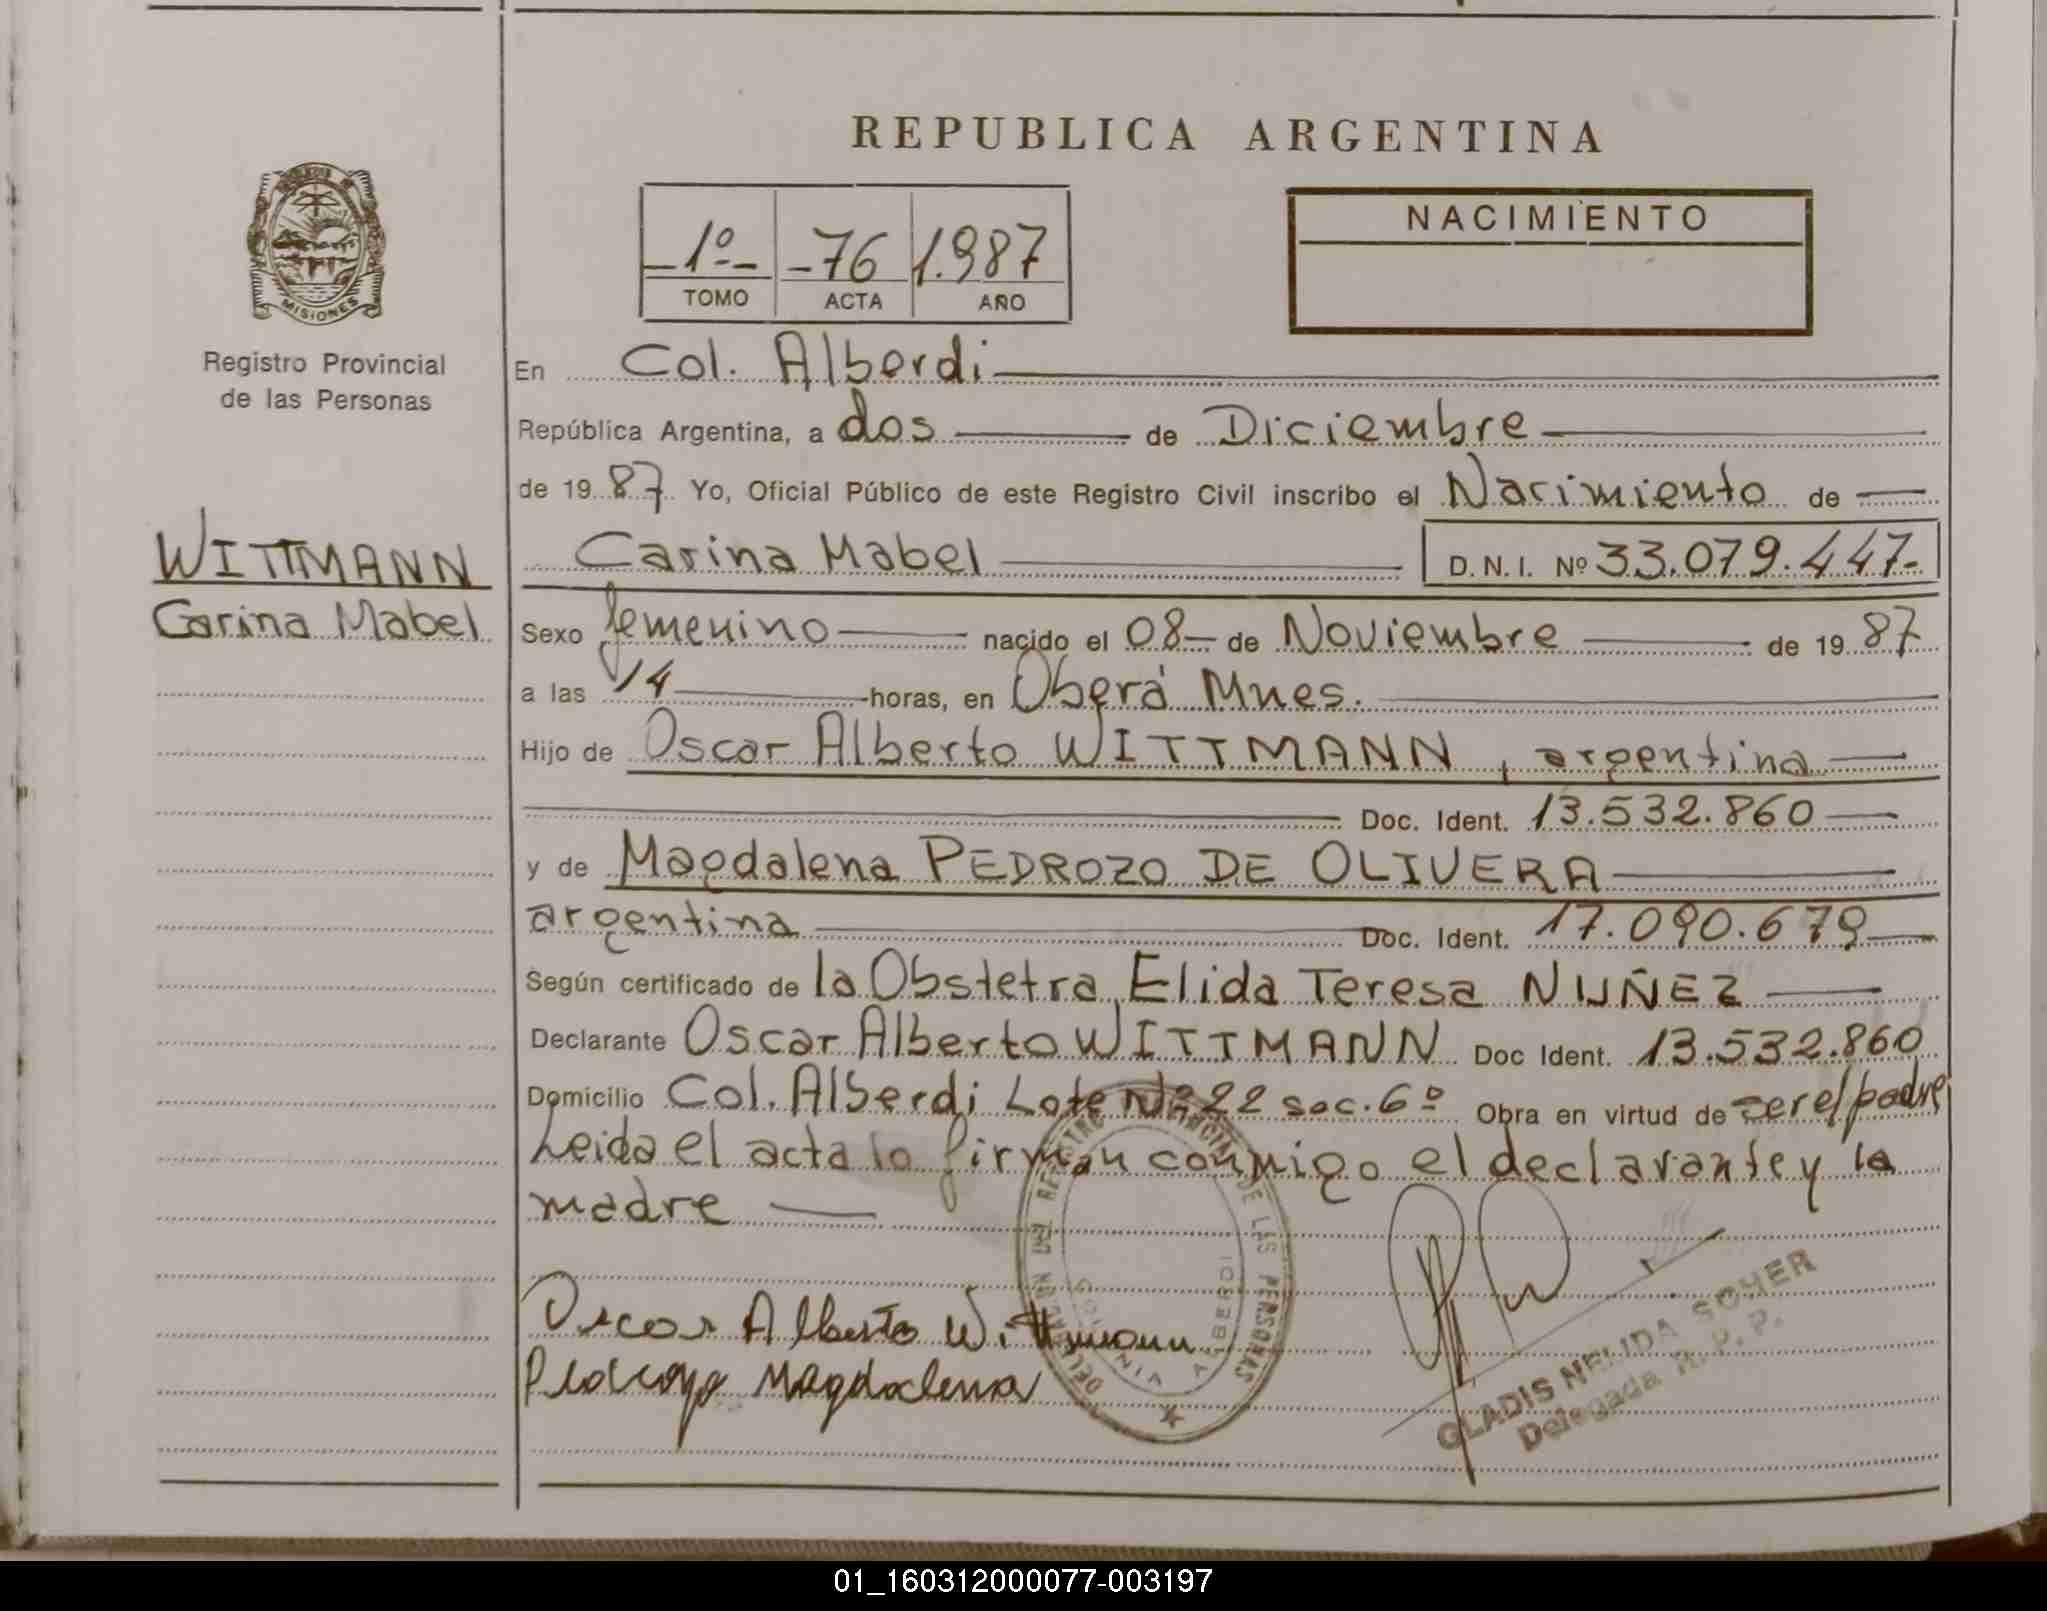 REPUBLICA ARGENTINA
-1º- -76 1.987
TOMO ACTA AÑO
NACIMIENTO
MISIONES
Registro Provincial
de las Personas
WITTMANN
Carina Mabel
En Col. Alberdi
República Argentina, a dos de Diciembre
de 1987 Yo, Oficial Público de este Registro Civil inscribo el Nacimiento de
Carina Mabel D.N.I. Nº 33.079.447-
Sexo femenino nacido el 08 de Noviembre de 1987
a las 14 horas, en Oberá Mnes.
Hijo de Oscar Alberto WITTMANN, argentina
Doc. Ident. 13.532.860
y de Magdalena PEDROZO DE OLIVERA
argentina Doc. Ident. 17.090.679
Según certificado de la Obstetra Elida Teresa NUÑEZ
Declarante Oscar Alberto WITTMANN Doc Ident. 13.532.860
Domicilio Col. Alberdi Lote Nº 22 sec. 6º Obra en virtud de ser el padre
Leida el acta lo firman conmigo el declarante y la
madre
Oscar Alberto Wittmann
Pedrozo Magdalena
DELEGACION DEL REGISTRO PROVINCIAL DE LAS PERSONAS
COLONIA ALBERDI
GLADIS NELIDA SOHER
Delegada R. P. P.
01_160312000077-003197